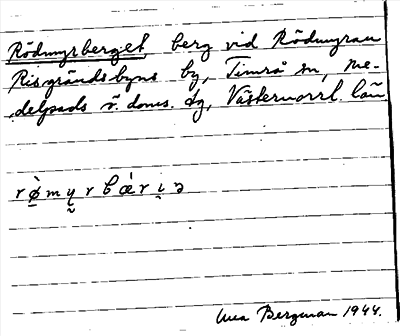 Rödmyrberget berg vid Rödmyran
Risgrändsbyns by, Timrå sn, Me-
delpads ö. doms. dg, Västernorrl. län
r ø̀ m y r b æ̀ r i ə
Bergman 1944.